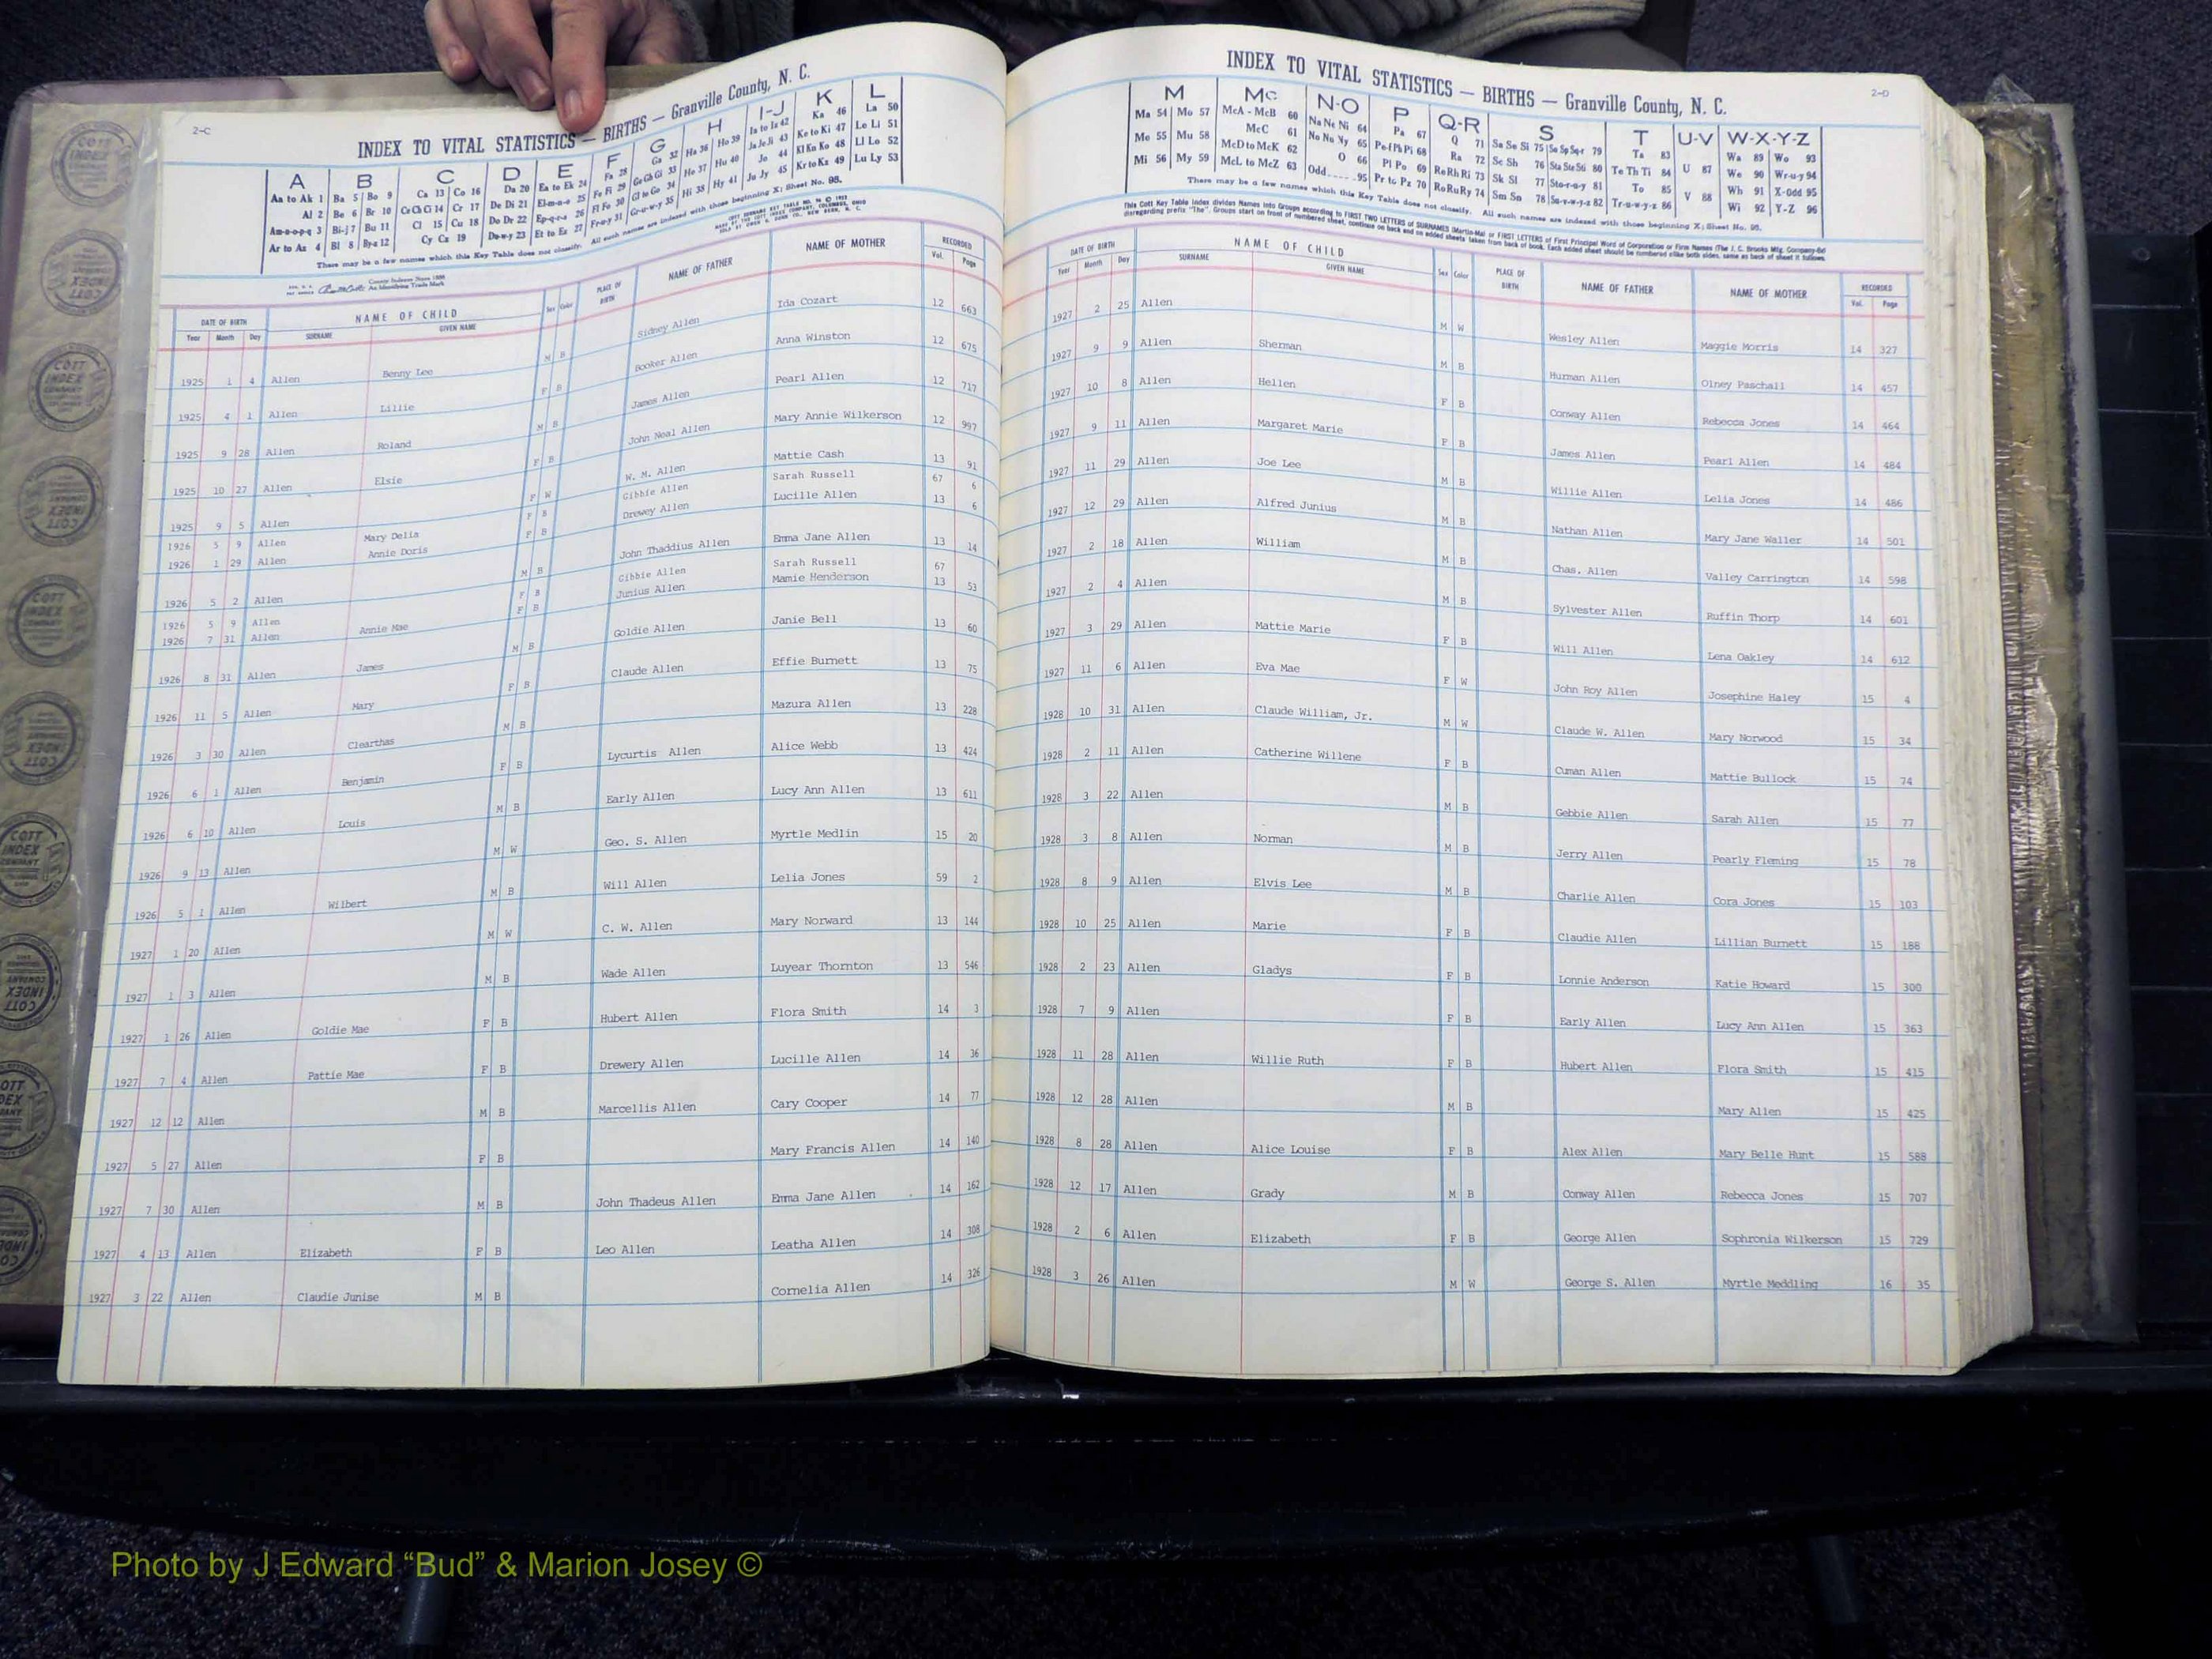 2-C
INDEX TO VITAL STATISTICS — BIRTHS — Granville County, N. C.
A B C D E F G H I-J K L
Aa to Ak 1 Ba 5 Bo 9 Ca 13 Co 16 Da 20 Ea to Ek 24 Fa 28 Ga 32 Ha 36 Ho 39 Ia to Iz 42 Ka 46 La 50
Al 2 Be 6 Br 10 Ce Ch Ci 14 Cr 17 De Di 21 El-m-n-o 25 Fe Fi 29 Ge Gh Gi 33 He 37 Hu 40 Ja Je Ji 43 Ke to Ki 47 Le Li 51
Am-n-o-p-q 3 Bi-j 7 Bu 11 Cl 15 Cu 18 Do Dr 22 Ep-q-r-s 26 Fl Fo 30 Gl to Go 34 Hi 38 Hy 41 Jo 44 Kl Kn Ko 48 Ll Lo 52
Ar to Az 4 Bl 8 By-z 12 Cy Cz 19 Du-w-y 23 Et to Ez 27 Fr-u-y 31 Gr-u-w-y 35 Ju Jy 45 Kr to Kz 49 Lu Ly 53
There may be a few names which this Key Table does not classify. All such names are indexed with those beginning X; Sheet No. 98.
DATE OF BIRTH NAME OF CHILD Sex Color PLACE OF BIRTH NAME OF FATHER NAME OF MOTHER RECORDED
Year Month Day SURNAME GIVEN NAME Vol. Page
1925 1 4 Allen Benny Lee M B Sidney Allen Ida Cozart 12 663
1925 4 1 Allen Lillie F B Booker Allen Anna Winston 12 675
1925 9 28 Allen Roland M B James Allen Pearl Allen 12 717
1925 10 27 Allen Elsie F B John Neal Allen Mary Annie Wilkerson 12 997
1925 9 5 Allen F W W. M. Allen Mattie Cash 13 91
1926 5 9 Allen Mary Delia F B Gibbie Allen Sarah Russell 67 6
1926 1 29 Allen Annie Doris F B Drewey Allen Lucille Allen 13 6
1926 5 2 Allen M B John Thaddius Allen Emma Jane Allen 13 14
1926 5 9 Allen F B Gibbie Allen Sarah Russell 67
1926 7 31 Allen Annie Mae F B Junius Allen Mamie Henderson 13 53
1926 8 31 Allen James M B Goldie Allen Janie Bell 13 60
1926 11 5 Allen Mary F B Claude Allen Effie Burnett 13 75
1926 3 30 Allen Clearthas M B Mazura Allen 13 228
1926 6 1 Allen Benjamin F B Lycurtis Allen Alice Webb 13 424
1926 6 10 Allen Louis M B Early Allen Lucy Ann Allen 13 611
1926 9 13 Allen M W Geo. S. Allen Myrtle Medlin 15 20
1926 5 1 Allen Wilbert M B Will Allen Lelia Jones 59 2
1927 1 20 Allen M W C. W. Allen Mary Norward 13 144
1927 1 3 Allen M B Wade Allen Luyear Thornton 13 546
1927 1 26 Allen Goldie Mae F B Hubert Allen Flora Smith 14 3
1927 7 4 Allen Pattie Mae F B Drewery Allen Lucille Allen 14 36
1927 12 12 Allen M B Marcellis Allen Cary Cooper 14 77
1927 5 27 Allen F B Mary Francis Allen 14 140
1927 7 30 Allen M B John Thadeus Allen Emma Jane Allen 14 162
1927 4 13 Allen Elizabeth F B Leo Allen Leatha Allen 14 308
1927 3 22 Allen Claudie Junise M B Cornelia Allen 14 326
2-D
INDEX TO VITAL STATISTICS — BIRTHS — Granville County, N. C.
M Mc N-O P Q-R S T U-V W-X-Y-Z
Ma 54 Mo 57 McA - McB 60 Na Ne Ni 64 Pa 67 Q 71 Sa Se Si 75 So Sp Sq-r 79 Ta 83 U 87 Wa 89 Wo 93
Me 55 Mu 58 McC 61 No Nu Ny 65 Pe-f Ph Pi 68 Ra 72 Sc Sh 76 Sta Ste Sti 80 Te Th Ti 84 V 88 We 90 Wr-u-y 94
Mi 56 My 59 McD to McK 62 O 66 Pl Po 69 Re Rh Ri 73 Sk Sl 77 Sto-r-u-y 81 To 85 Wh 91 X-Odd 95
McL to McZ 63 Odd 95 Pr to Pz 70 Ro Ru Ry 74 Sm Sn 78 Su-v-w-y-z 82 Tr-u-w-y-z 86 Wi 92 Y-Z 96
There may be a few names which this Key Table does not classify. All such names are indexed with those beginning X; Sheet No. 98.
This Cott Key Table Index divides Names into Groups according to FIRST TWO LETTERS of SURNAMES (Martin-Ma) or FIRST LETTERS of First Principal Word of Corporation or Firm Names (The J. C. Brooks Mfg. Company-Br)
disregarding prefix "The". Groups start on front of numbered sheet, continue on back and on added sheets taken from back of book. Each added sheet should be numbered alike both sides, same as back of sheet it follows.
DATE OF BIRTH NAME OF CHILD Sex Color PLACE OF BIRTH NAME OF FATHER NAME OF MOTHER RECORDED
Year Month Day SURNAME GIVEN NAME Vol. Page
1927 2 25 Allen M W Wesley Allen Maggie Morris 14 327
1927 9 9 Allen Sherman M B Hurman Allen Olney Paschall 14 457
1927 10 8 Allen Hellen F B Conway Allen Rebecca Jones 14 464
1927 9 11 Allen Margaret Marie F B James Allen Pearl Allen 14 484
1927 11 29 Allen Joe Lee M B Willie Allen Lelia Jones 14 486
1927 12 29 Allen Alfred Junius M B Nathan Allen Mary Jane Waller 14 501
1927 2 18 Allen William M B Chas. Allen Valley Carrington 14 598
1927 2 4 Allen M B Sylvester Allen Ruffin Thorp 14 601
1927 3 29 Allen Mattie Marie F B Will Allen Lena Oakley 14 612
1927 11 6 Allen Eva Mae F W John Roy Allen Josephine Haley 15 4
1928 10 31 Allen Claude William, Jr. M W Claude W. Allen Mary Norwood 15 34
1928 2 11 Allen Catherine Willene F B Cuman Allen Mattie Bullock 15 74
1928 3 22 Allen M B Gebbie Allen Sarah Allen 15 77
1928 3 8 Allen Norman M B Jerry Allen Pearly Fleming 15 78
1928 8 9 Allen Elvis Lee M B Charlie Allen Cora Jones 15 103
1928 10 25 Allen Marie F B Claudie Allen Lillian Burnett 15 188
1928 2 23 Allen Gladys F B Lonnie Anderson Katie Howard 15 300
1928 7 9 Allen F B Early Allen Lucy Ann Allen 15 363
1928 11 28 Allen Willie Ruth F B Hubert Allen Flora Smith 15 415
1928 12 28 Allen M B Mary Allen 15 425
1928 8 28 Allen Alice Louise F B Alex Allen Mary Belle Hunt 15 588
1928 12 17 Allen Grady M B Conway Allen Rebecca Jones 15 707
1928 2 6 Allen Elizabeth F B George Allen Sophronia Wilkerson 15 729
1928 3 26 Allen M W George S. Allen Myrtle Meddling 16 35
COTT INDEX
Photo by J Edward “Bud” & Marion Josey ©